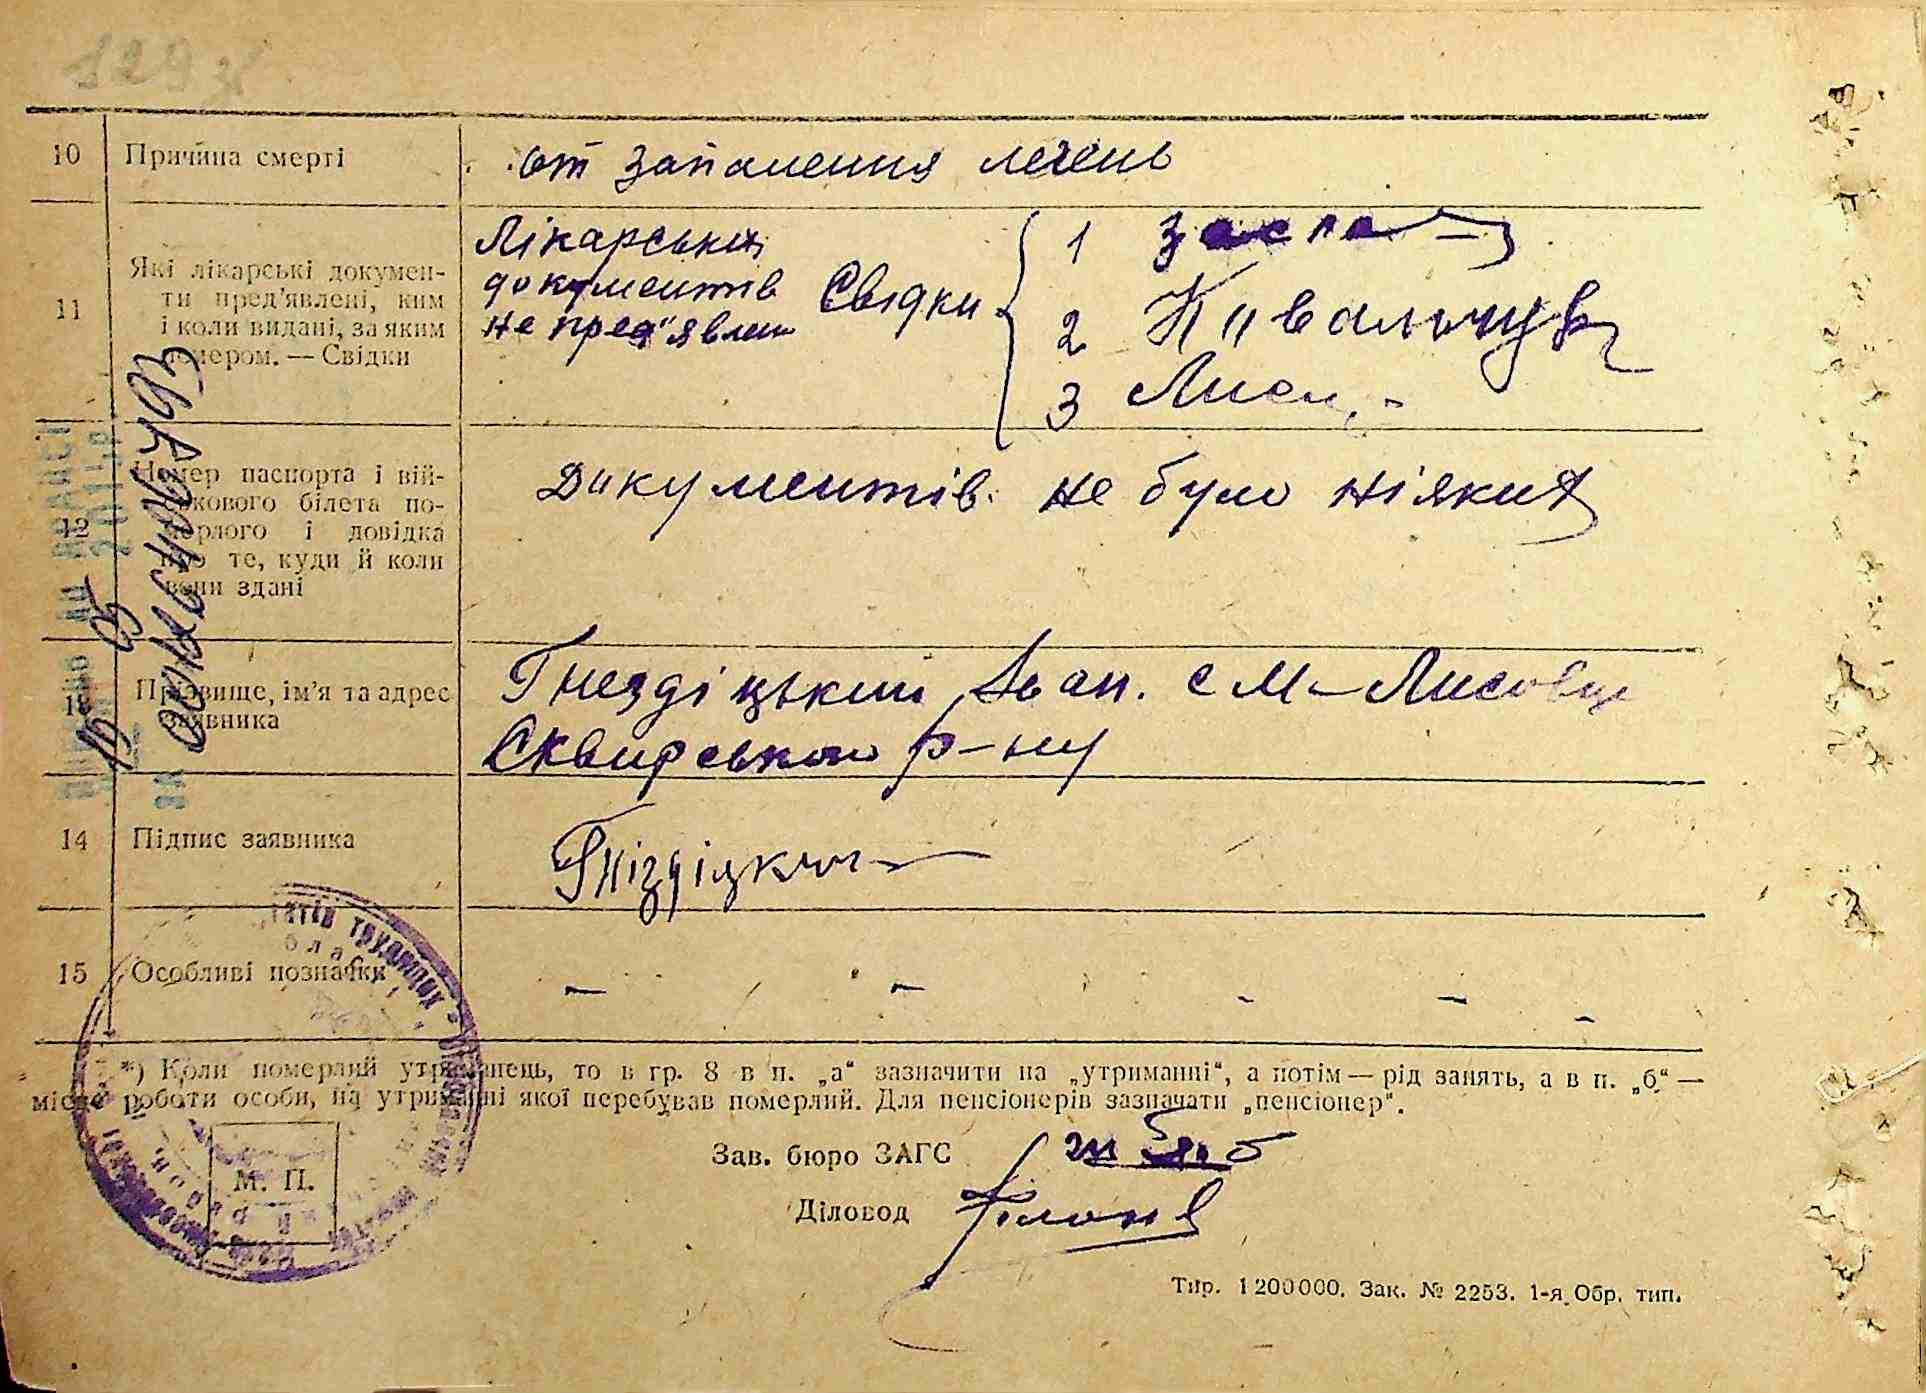 10 Причина смерті от запалення легень
11 Які лікарські докумен-
ти пред'явлені, ким
і коли видані, за яким
номером. — Свідки
Лікарських
документів
не пред"явлен
Свідки
1
2 Ковальчук
3
12 Номер паспорта і вій-
ськового білета по-
мерлого і довідка
про те, куди й коли
вони здані
Документів не було ніяких
13 Прізвище, ім'я та адрес
заявника
Гнездіцький Іван. с М-Лисовці
Сквирського р-ну
14 Підпис заявника Гніздіцкий
15 Особливі позначки - - - - -
*) Коли померлий утриманець, то в гр. 8 в п. „а“ зазначити на „утриманні“, а потім — рід занять, а в п. „б“ —
місце роботи особи, на утриманні якої перебував померлий. Для пенсіонерів зазначати „пенсіонер“.
Зав. бюро ЗАГС
Діловод
М. П.
Тир. 1200000. Зак. № 2253. 1-я Обр. тип.